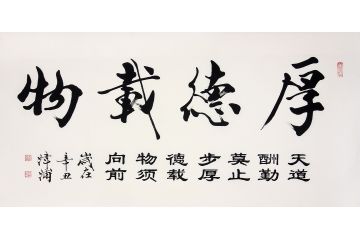 厚德載物
天道
酬勤
莫止
步厚
德载
物须
向前
歲在
辛丑